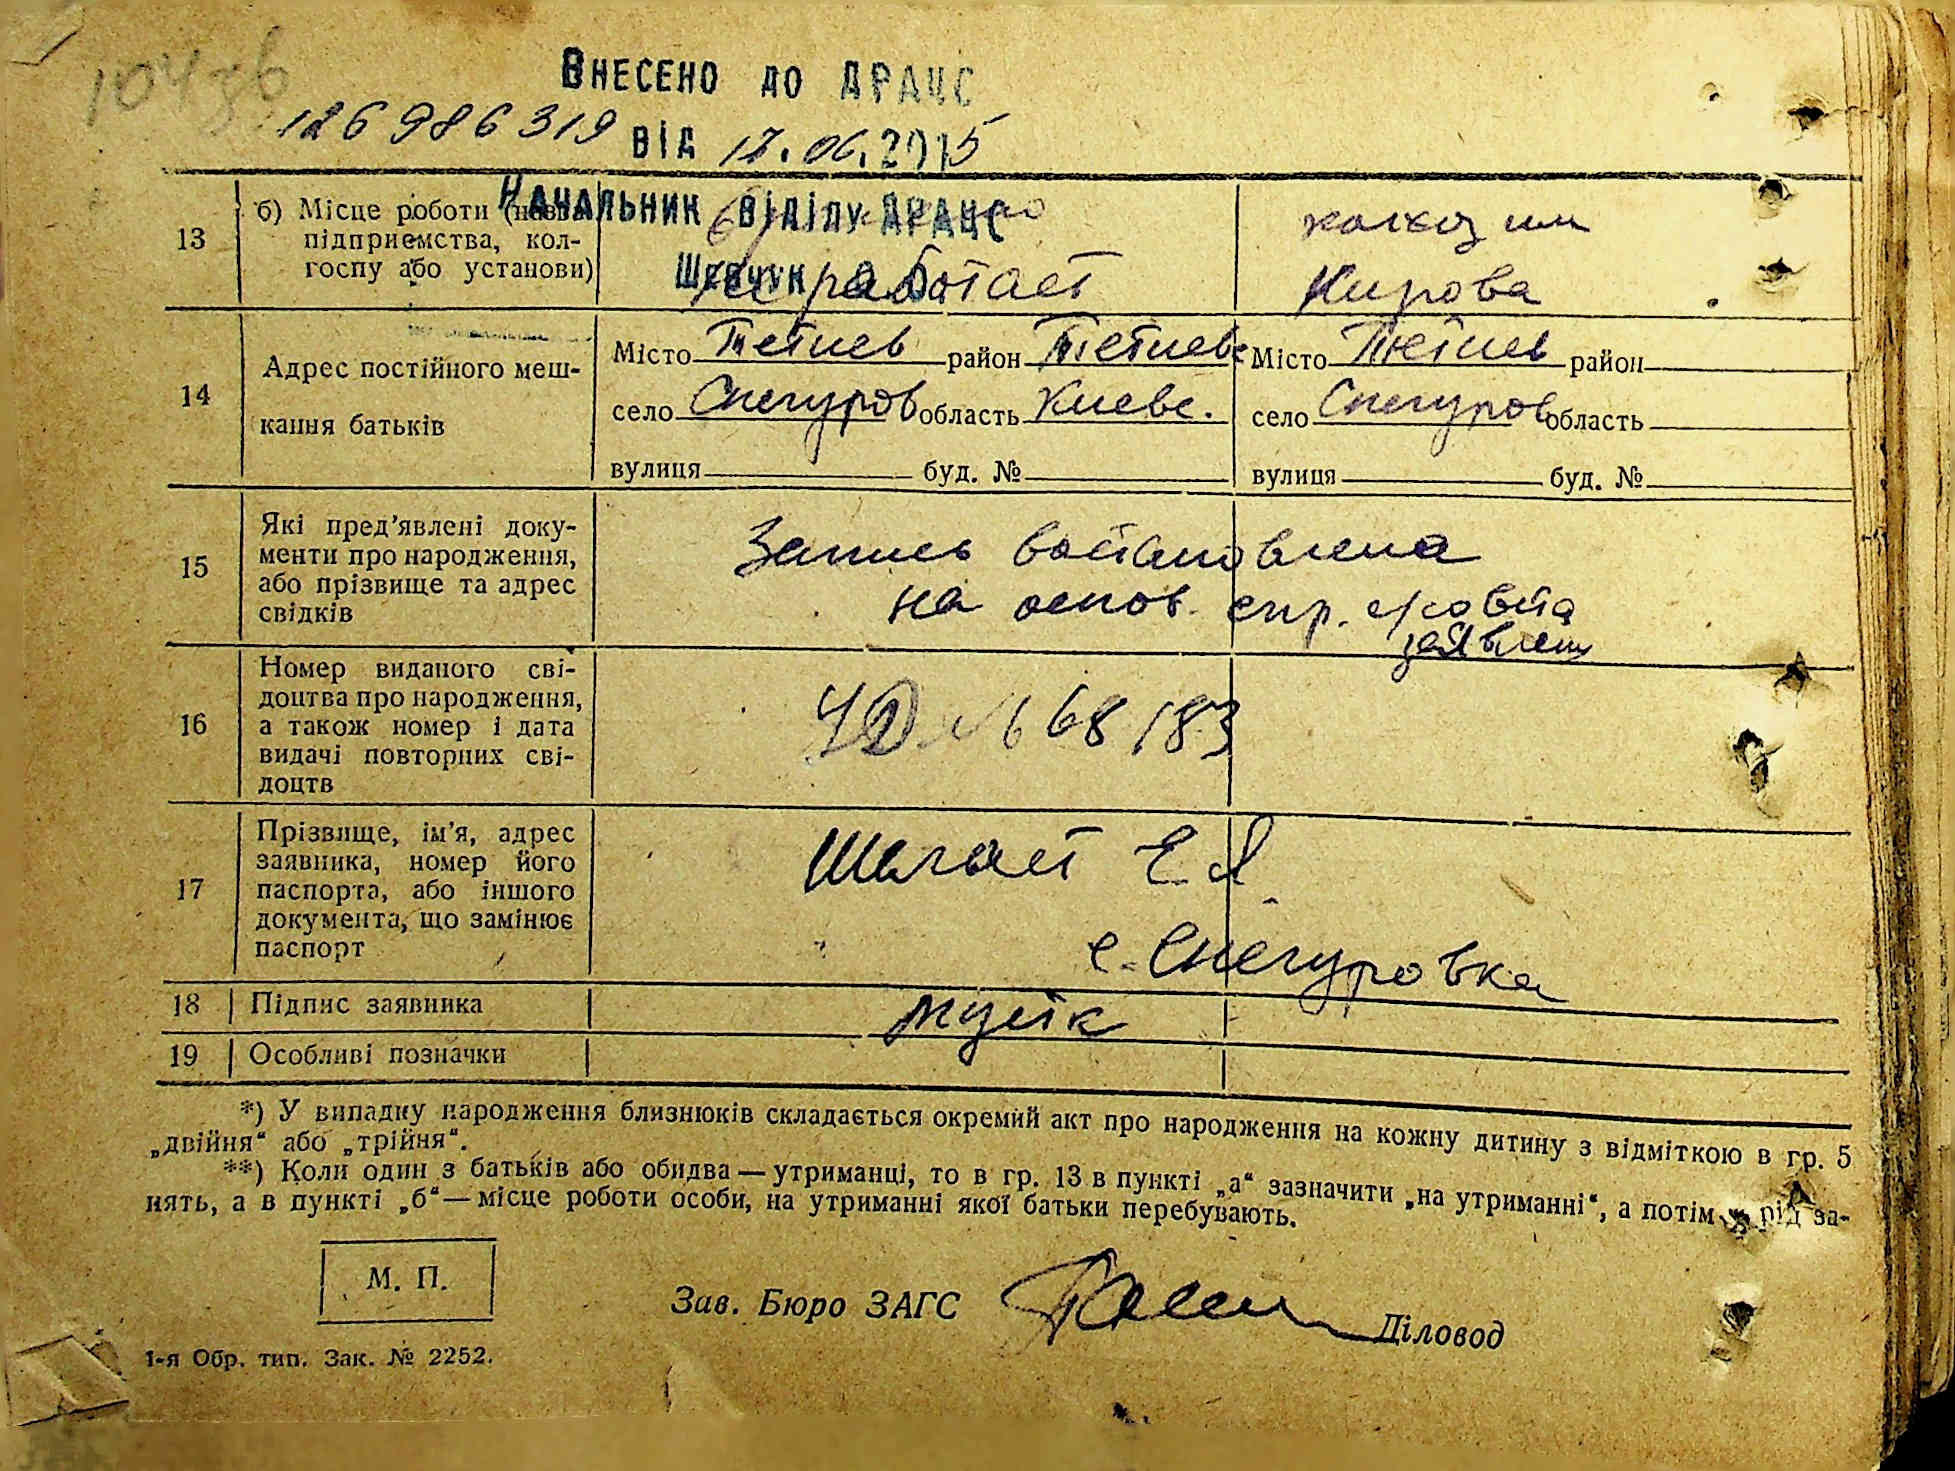 Внесено до ДРАЦС
126986319 від 17.06.2015
Начальник відділу ДРАЦС
Шевчук
13
б) Місце роботи (назва
підприємства, кол-
госпу або установи)
не работает
колхоз им
Кирова
14
Адрес постійного меш-
кання батьків
Місто Тетиев район Тетиевс
село Снегуров область Киевс.
вулиця буд. №
Місто Тетиев район
село Снегуров область
вулиця буд. №
15
Які пред'явлені доку-
менти про народження,
або прізвище та адрес
свідків
Запись востановлена
на основ. спр. с/совета
заявлен
16
Номер виданого сві-
доцтва про народження,
а також номер і дата
видачі повторних сві-
доцтв
№ 668183
17
Прізвище, ім'я, адрес
заявника, номер його
паспорта, або іншого
документа, що замінює
паспорт
Шагает Е. Я.
с. Снегуровка
18 Підпис заявника
19 Особливі позначки
*) У випадку народження близнюків складається окремий акт про народження на кожну дитину з відміткою в гр. 5
„двійня“ або „трійня“.
**) Коли один з батьків або обидва — утриманці, то в гр. 13 в пункті „а“ зазначити „на утриманні“, а потім рід за-
нять, а в пункті „б“ — місце роботи особи, на утриманні якої батьки перебувають.
М. П.
Зав. Бюро ЗАГС
Діловод
1-я Обр. тип. Зак. № 2252.